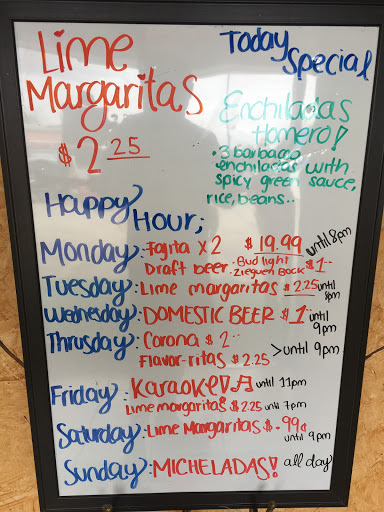 Lime
Margaritas
$2 25
Today
Special
Enchiladas
Homero!
• 3 barbacca
enchiladas with
spicy green sauce,
rice, beans..
Happy
Hour;
Monday: fajita x 2 $19.99 until 8pm
Draft beer • Bud light $1--
• Zieguen Bock
Tuesday: Lime margaritas $2.25 until
8pm
Wednesday: DOMESTIC BEER $1-- until
9pm
Thrusday: Corona $2--
Flavor-ritas $2.25 >until 9pm
Friday: Karaoke until 11pm
Lime margaritas $2.25 until 7pm
Saturday: Lime Margaritas $.99¢
until 9pm
Sunday: MICHELADAS! all day